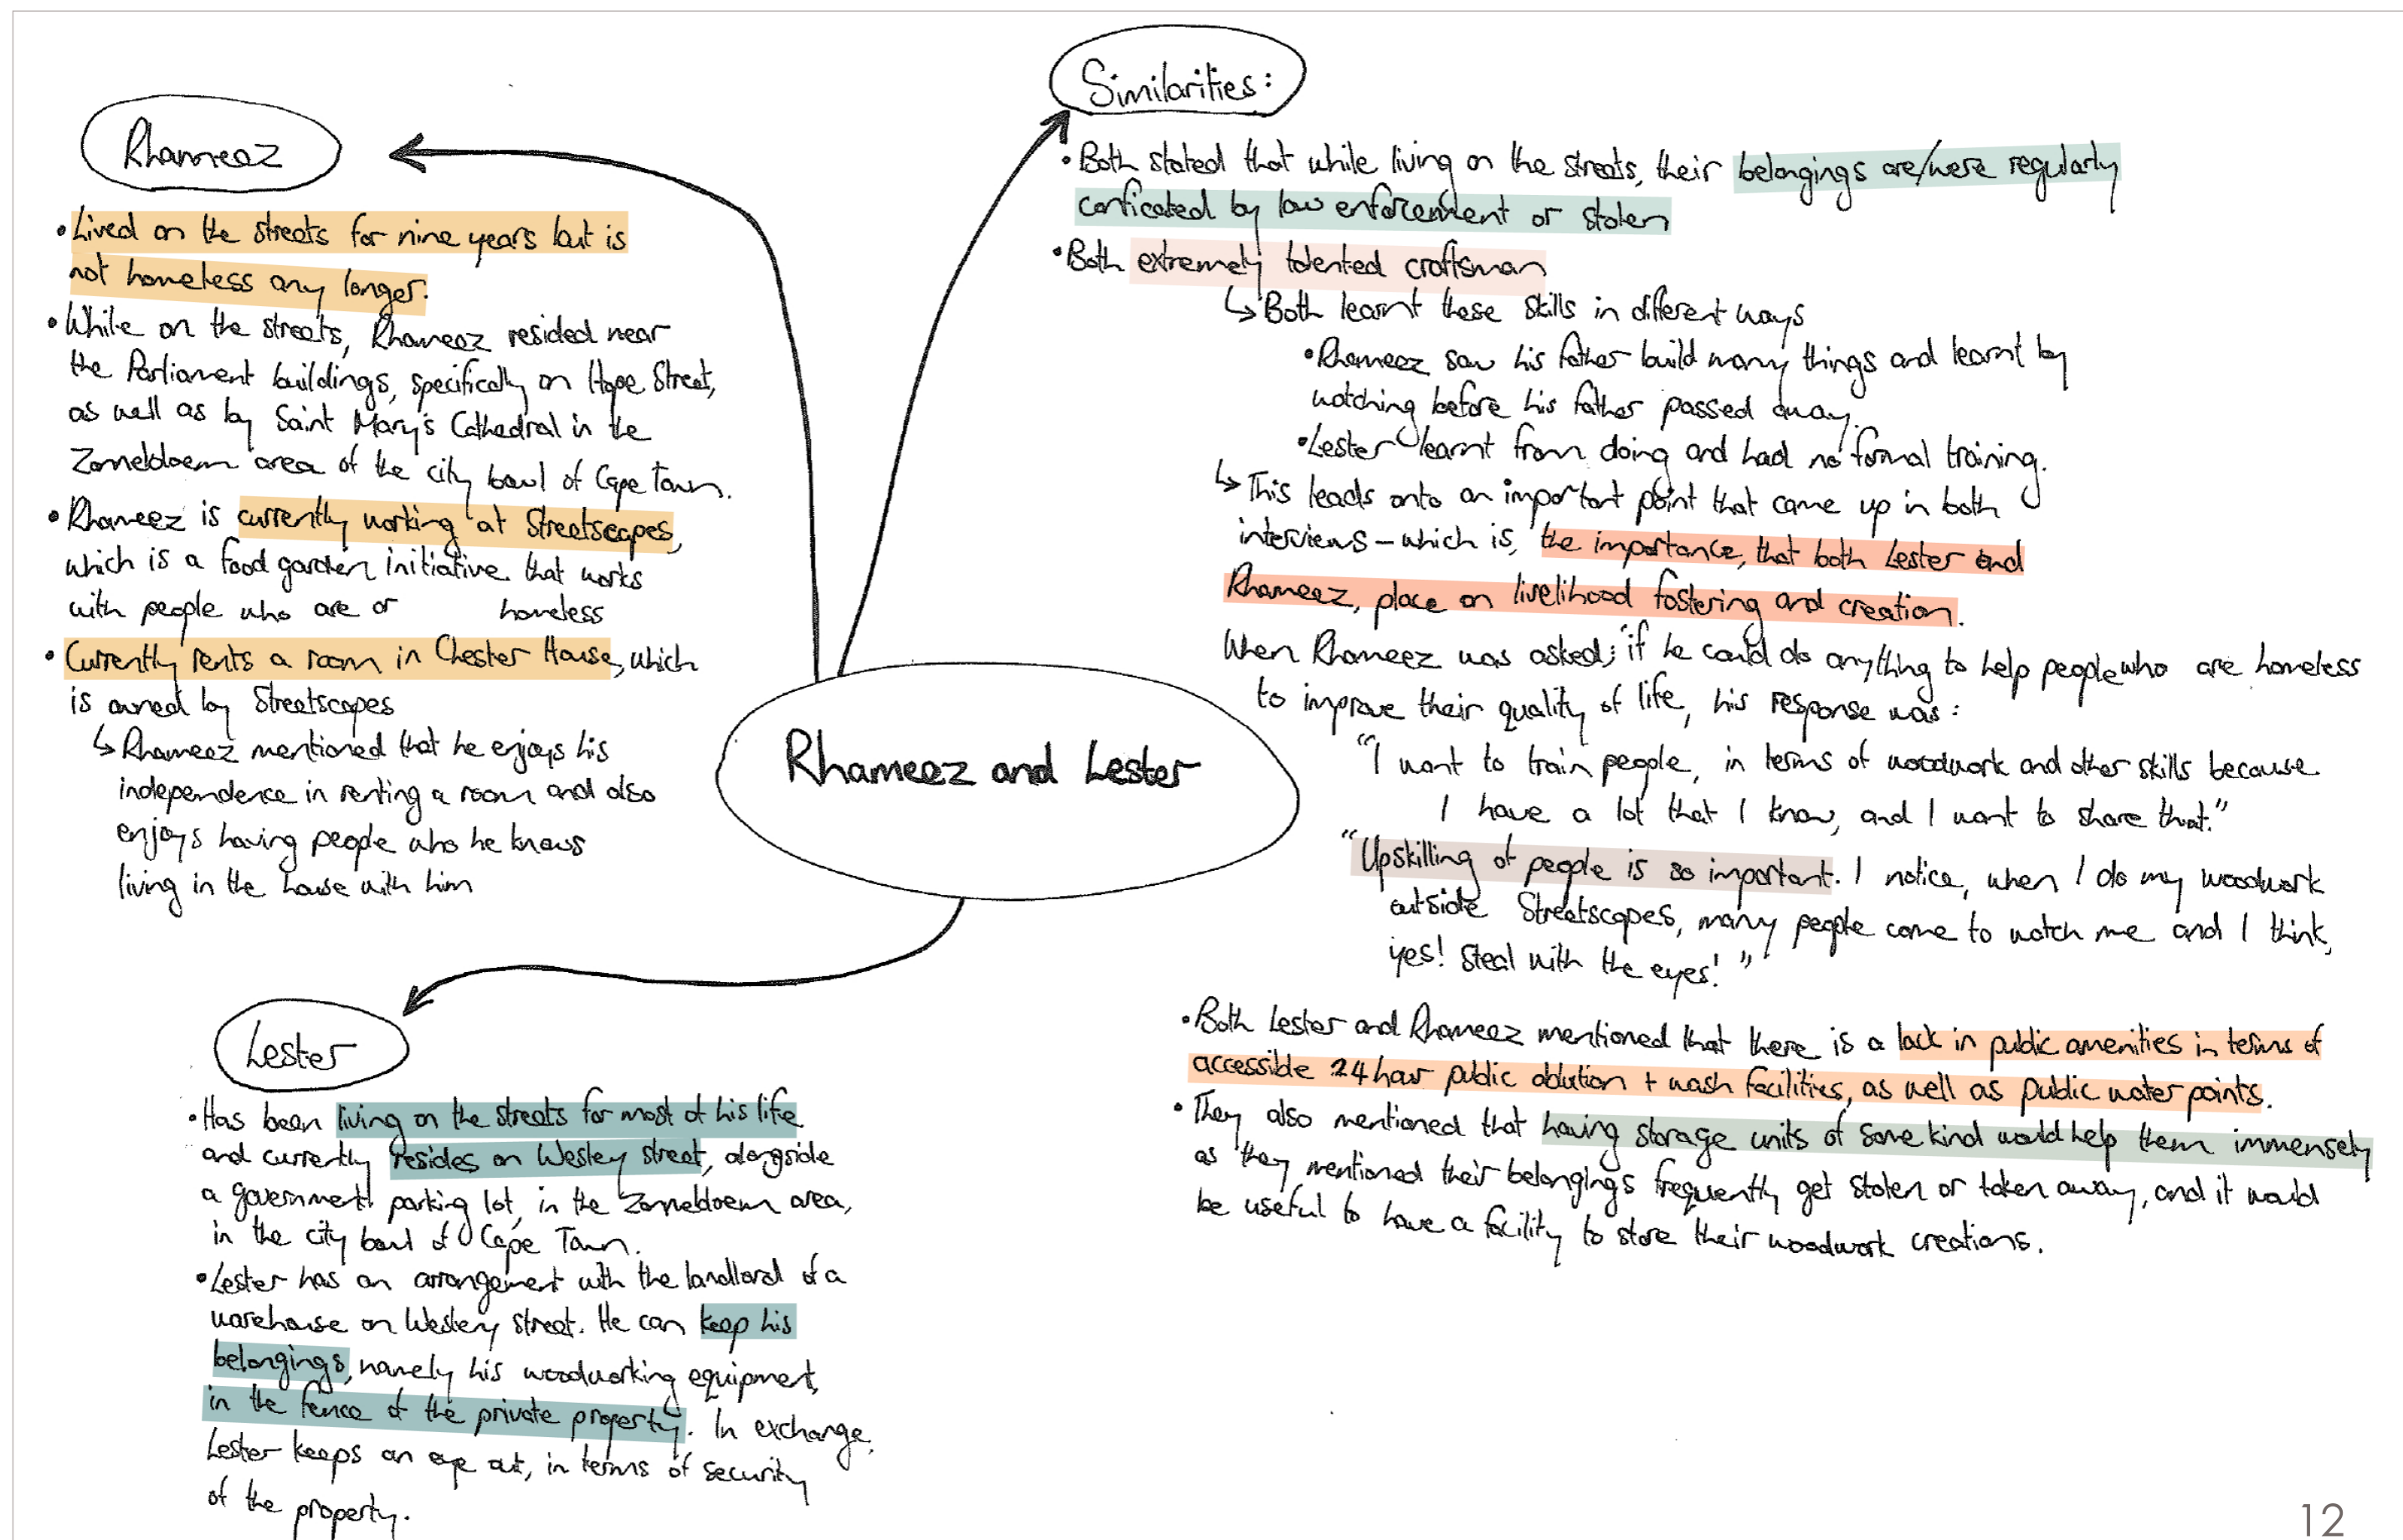 Rhameez
• Lived on the streets for nine years but is
not homeless any longer.
• While on the streets, Rhameez resided near
the Parliament buildings, specifically on Hope Street,
as well as by Saint Mary's Cathedral in the
Zonnebloem area of the city bowl of Cape Town.
• Rhameez is currently working at Streetscapes,
which is a food garden initiative that works
with people who are or homeless
• Currently rents a room in Chester House, which
is owned by Streetscapes
↳ Rhameez mentioned that he enjoys his
independence in renting a room and also
enjoys having people who he knows
living in the house with him
Rhameez and Lester
Lester
• Has been living on the streets for most of his life
and currently resides on Wesley street, alongside
a government parking lot, in the Zonnebloem area,
in the city bowl of Cape Town.
• Lester has an arrangement with the landlord of a
warehouse on Wesley street. He can keep his
belongings, namely his woodworking equipment,
in the fence of the private property. In exchange,
Lester keeps an eye out, in terms of security
of the property.
Similarities:
• Both stated that while living on the streets, their belongings are/were regularly
conficated by law enforcement or stolen
• Both extremely talented craftsman
↳ Both learnt these skills in different ways
• Rhameez saw his father build many things and learnt by
watching before his father passed away.
• Lester learnt from doing and had no formal training.
↳ This leads onto an important point that came up in both
interviews – which is, the importance, that both Lester and
Rhameez, place on livelihood fostering and creation.
When Rhameez was asked; if he could do anything to help people who are homeless
to improve their quality of life, his response was:
"I want to train people, in terms of woodwork and other skills because
I have a lot that I know, and I want to share that."
"Upskilling of people is so important. I notice, when I do my woodwork
outside Streetscapes, many people come to watch me and I think,
yes! Steal with the eyes!"
• Both Lester and Rhameez mentioned that there is a lack in public amenities in terms of
accessible 24 hour public ablution + wash facilities, as well as public water points.
• They also mentioned that having storage units of some kind would help them immensely
as they mentioned their belongings frequently get stolen or taken away, and it would
be useful to have a facility to store their woodwork creations.
12